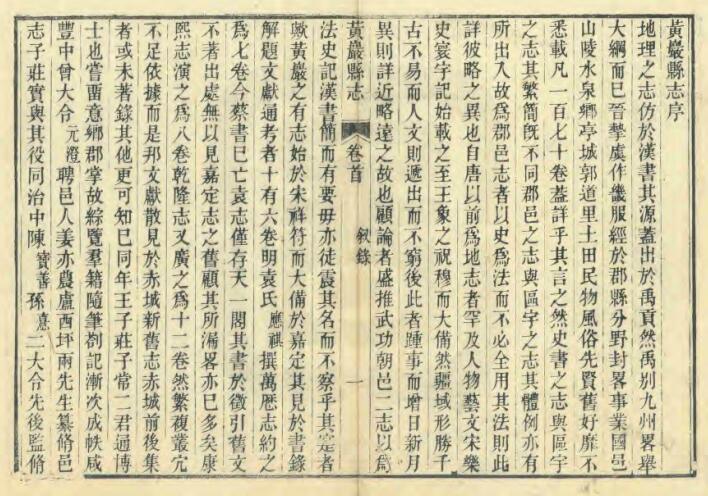 黃巖縣志序
地理之志仿於漢書其源蓋出於禹貢然禹別九州畧舉
大綱而已晉摯虞作畿服經於郡縣分野封畧事業國邑
山陵水泉鄉亭城郭道里土田民物風俗先賢舊好靡不
悉載凡一百七十卷蓋詳乎其言之然史書之志與區宇
之志其繁簡旣不同郡邑之志與區宇之志其體例亦有
所出入故爲郡邑志者以史爲法而不必全用其法則此
詳彼略之異也自唐以前爲地志者罕及人物藝文宋樂
史寰宇記始載之至王象之祝穆而大備然疆域形勝千
古不易而人文則遞出而不窮後此者踵事而增日新月
異則詳近略遠之故也顧論者盛推武功朝邑二志以爲
黃巖縣志
卷首
敘錄
一
法史記漢書簡而有要毋亦徒震其名而不察乎其實者
歟黃巖之有志始於宋祥符而大備於嘉定其見於書錄
解題文獻通考者十有六卷明袁氏應祺撰萬厯志約之
爲七卷今蔡書已亡袁志僅存天一閣其書於徵引舊文
不著出處無以見嘉定志之舊顧其所漏畧亦已多矣康
熙志演之爲八卷乾隆志又廣之爲十二卷然繁複叢冗
不足依據而是邦文獻散見於赤城新舊志赤城前後集
者或未著錄其他更可知已同年王子莊子常二君通博
士也嘗畱意鄉郡掌故綜覽羣籍隨筆劄記漸次成帙咸
豐中曾大令元澄聘邑人姜亦農盧西坪兩先生纂脩邑
志子莊實與其役同治中陳寶善孫憙二大令先後監脩